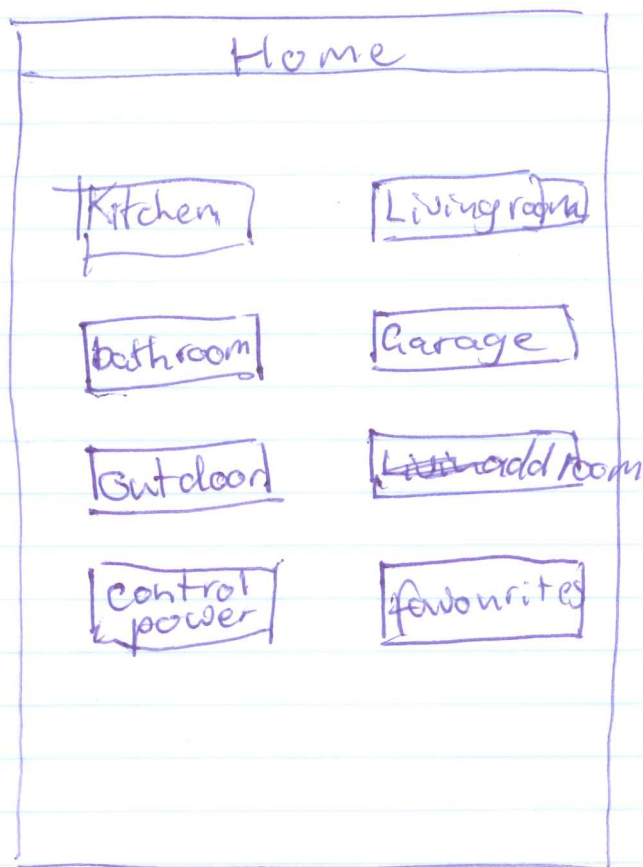 Home
Kitchen
Livingroom
bathroom
Garage
Outdoor
add room
control
power
favourites